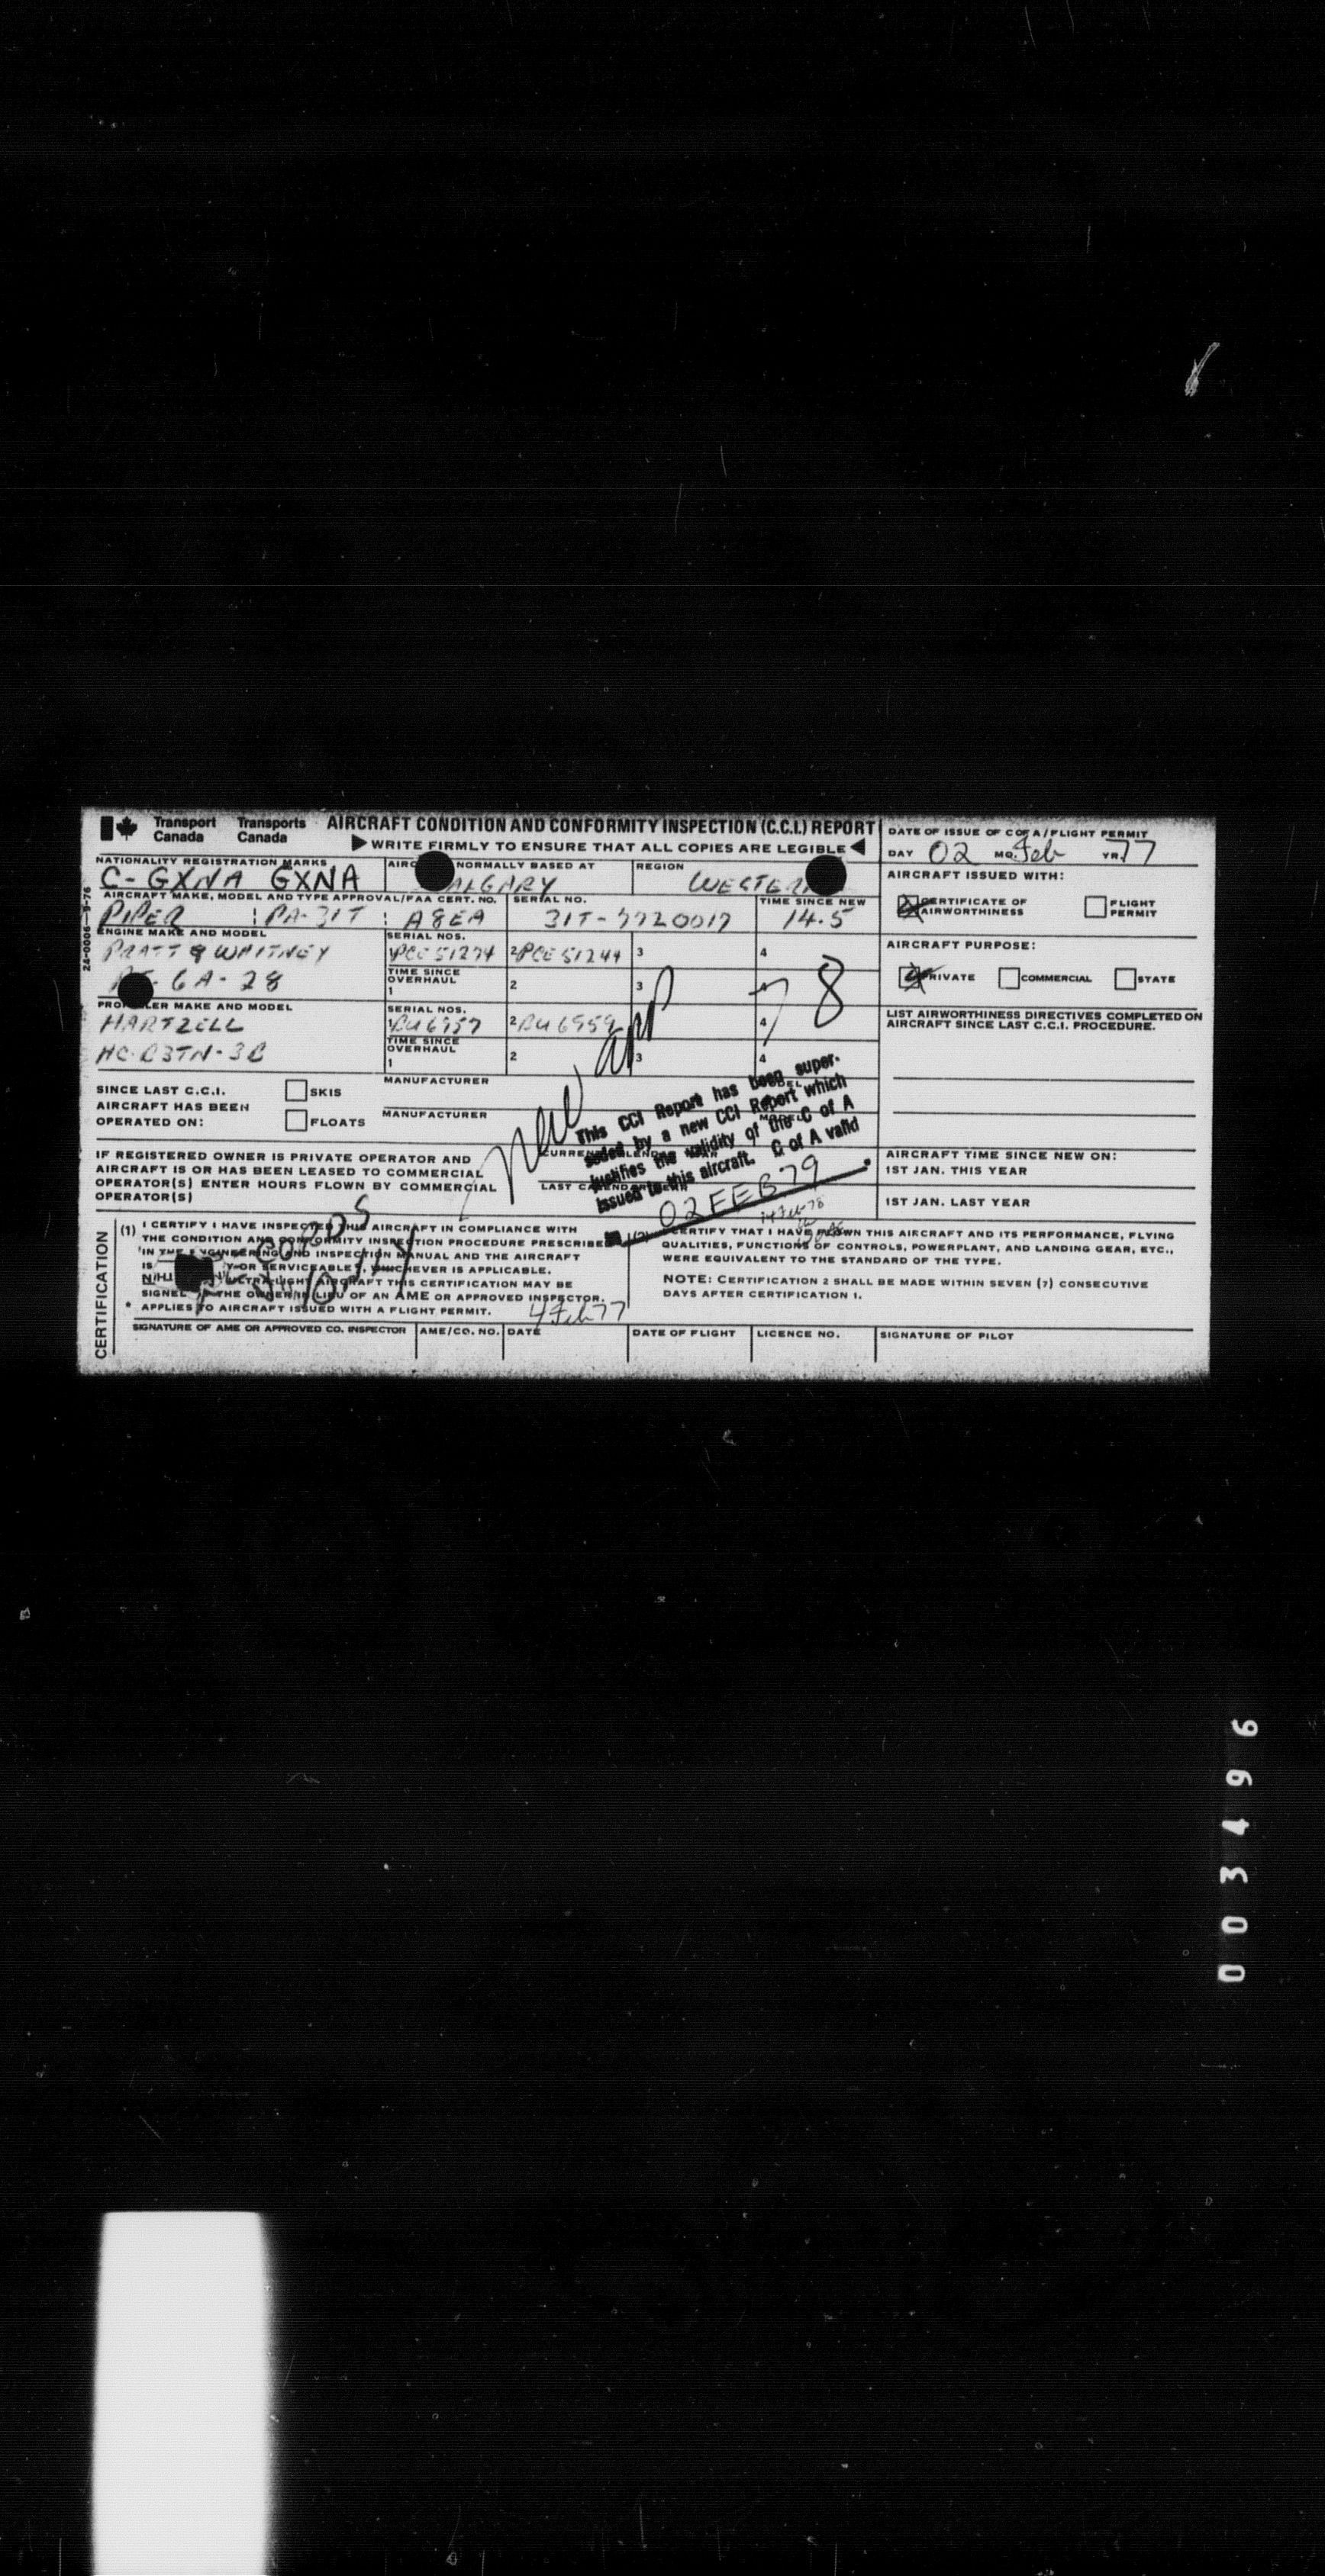 Transport Canada Transports Canada AIRCRAFT CONDITION AND CONFORMITY INSPECTION (C.C.I.) REPORT
WRITE FIRMLY TO ENSURE THAT ALL COPIES ARE LEGIBLE
DATE OF ISSUE OF C OF A / FLIGHT PERMIT
DAY 02 MO. Feb YR. 77
NATIONALITY REGISTRATION MARKS
C- GXNA GXNA
NORMALLY BASED AT
ALGARY
REGION
WESTER
AIRCRAFT ISSUED WITH:
CERTIFICATE OF AIRWORTHINESS
FLIGHT PERMIT
AIRCRAFT MAKE, MODEL AND TYPE APPROVAL/FAA CERT. NO.
PIPER PA-31T A8EA
SERIAL NO.
31T-7720017
TIME SINCE NEW
14.5
ENGINE MAKE AND MODEL
PRATT & WHITNEY
6A-28
SERIAL NOS.
1 PCE 51274 2 PCE 51244 3 4
TIME SINCE OVERHAUL
1 2 3 4
AIRCRAFT PURPOSE:
PRIVATE COMMERCIAL STATE
PROPELLER MAKE AND MODEL
HARTZELL
HC-B3TN-3B
SERIAL NOS.
1 BU6957 2 BU6959 3 4
TIME SINCE OVERHAUL
1 2 3 4
LIST AIRWORTHINESS DIRECTIVES COMPLETED ON
AIRCRAFT SINCE LAST C.C.I. PROCEDURE.
78
SINCE LAST C.C.I.
AIRCRAFT HAS BEEN
OPERATED ON:
SKIS
FLOATS
MANUFACTURER
MANUFACTURER
This CCI Report has been super-
seded by a new CCI Report which
justifies the validity of the C of A
issued to this aircraft. C of A valid
02 FEB 79
14 Feb 78
IF REGISTERED OWNER IS PRIVATE OPERATOR AND
AIRCRAFT IS OR HAS BEEN LEASED TO COMMERCIAL
OPERATOR(S) ENTER HOURS FLOWN BY COMMERCIAL
OPERATOR(S)
AIRCRAFT TIME SINCE NEW ON:
1ST JAN. THIS YEAR
1ST JAN. LAST YEAR
CERTIFICATION
(1) I CERTIFY I HAVE INSPECTED THIS AIRCRAFT IN COMPLIANCE WITH
THE CONDITION AND CONFORMITY INSPECTION PROCEDURE PRESCRIBED
IN THE ENGINEERING AND INSPECTION MANUAL AND THE AIRCRAFT
IS OR SERVICEABLE*, WHICHEVER IS APPLICABLE.
ULTRA-LIGHT AIRCRAFT THIS CERTIFICATION MAY BE
SIGNED THE OWNER IN LIEU OF AN AME OR APPROVED INSPECTOR.
* APPLIES TO AIRCRAFT ISSUED WITH A FLIGHT PERMIT.
4 Feb 77
CERTIFY THAT I HAVE FLOWN THIS AIRCRAFT AND ITS PERFORMANCE, FLYING
QUALITIES, FUNCTIONS OF CONTROLS, POWERPLANT, AND LANDING GEAR, ETC.,
WERE EQUIVALENT TO THE STANDARD OF THE TYPE.
NOTE: CERTIFICATION 2 SHALL BE MADE WITHIN SEVEN (7) CONSECUTIVE
DAYS AFTER CERTIFICATION 1.
SIGNATURE OF AME OR APPROVED CO. INSPECTOR AME/CO. NO. DATE DATE OF FLIGHT LICENCE NO. SIGNATURE OF PILOT
003496